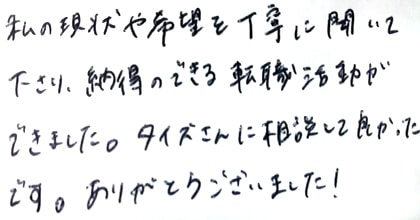 私の現状や希望を丁寧に聞いて
下さり、納得のできる転職活動が
できました。タイズさんに相談して良かった
です。ありがとうございました!